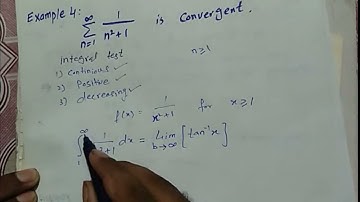 Example 4: ∑_{n=1}^{∞} 1/(n²+1) is convergent.
Integral test n≥1
1) Continuous ✓
2) Positive ✓
3) decreasing ✓
f(x) = 1/(x²+1) for x≥1
∫_1^∞ 1/(x²+1) dx = Lim_{b→∞} [tan⁻¹x]